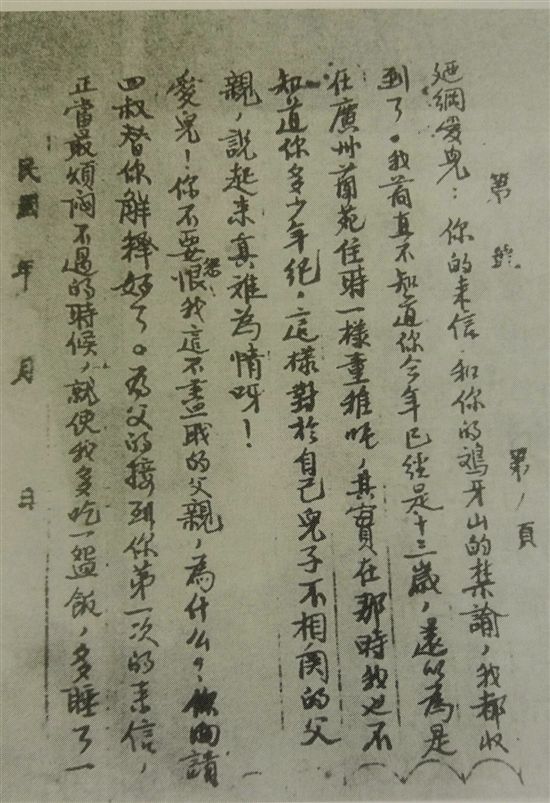 第 號
第1頁
廼綱愛兒：你的来信和你的鴉牙山的禁諭，我都收
到了。我簡真不知道你今年已经是十三歲，還以為是
在廣州蘭苑住時一樣童稚呢，其實在那時我也不
知道你多少年纪。這樣對於自己兒子不相関的父
親，説起来真难為情呀！
愛兒！你不要怨恨我這不盡職的父親，為什么？你囬請
四叔替你解释好了。為父的接到你第一次的来信，
正當最煩悶不過的時候，就使我多吃一盌飯，多睡了一
民國 年 月 日